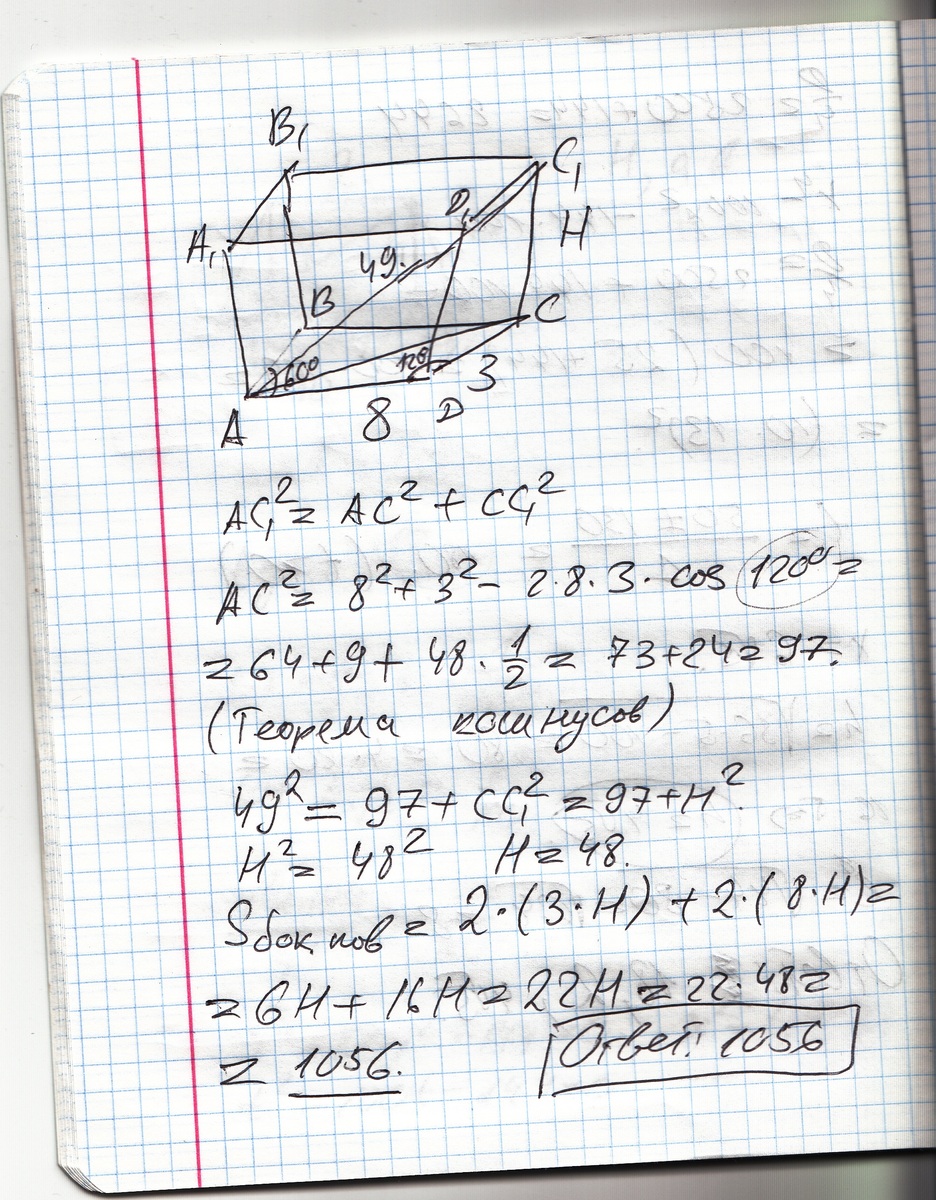 B₁
C₁
D₁
A₁
H
49.
B
C
60°
120°
3
A
8
D
AC₁² = AC² + CC₁²
AC² = 8² + 3² - 2·8·3·cos 120° =
= 64 + 9 + 48 · 1/2 = 73 + 24 = 97.
(Теорема косинусов)
49² = 97 + CC₁² = 97 + H².
H² = 48² H = 48.
Sбок. пов = 2·(3·H) + 2·(8·H) =
= 6H + 16H = 22H = 22·48 =
= 1056. Ответ: 1056